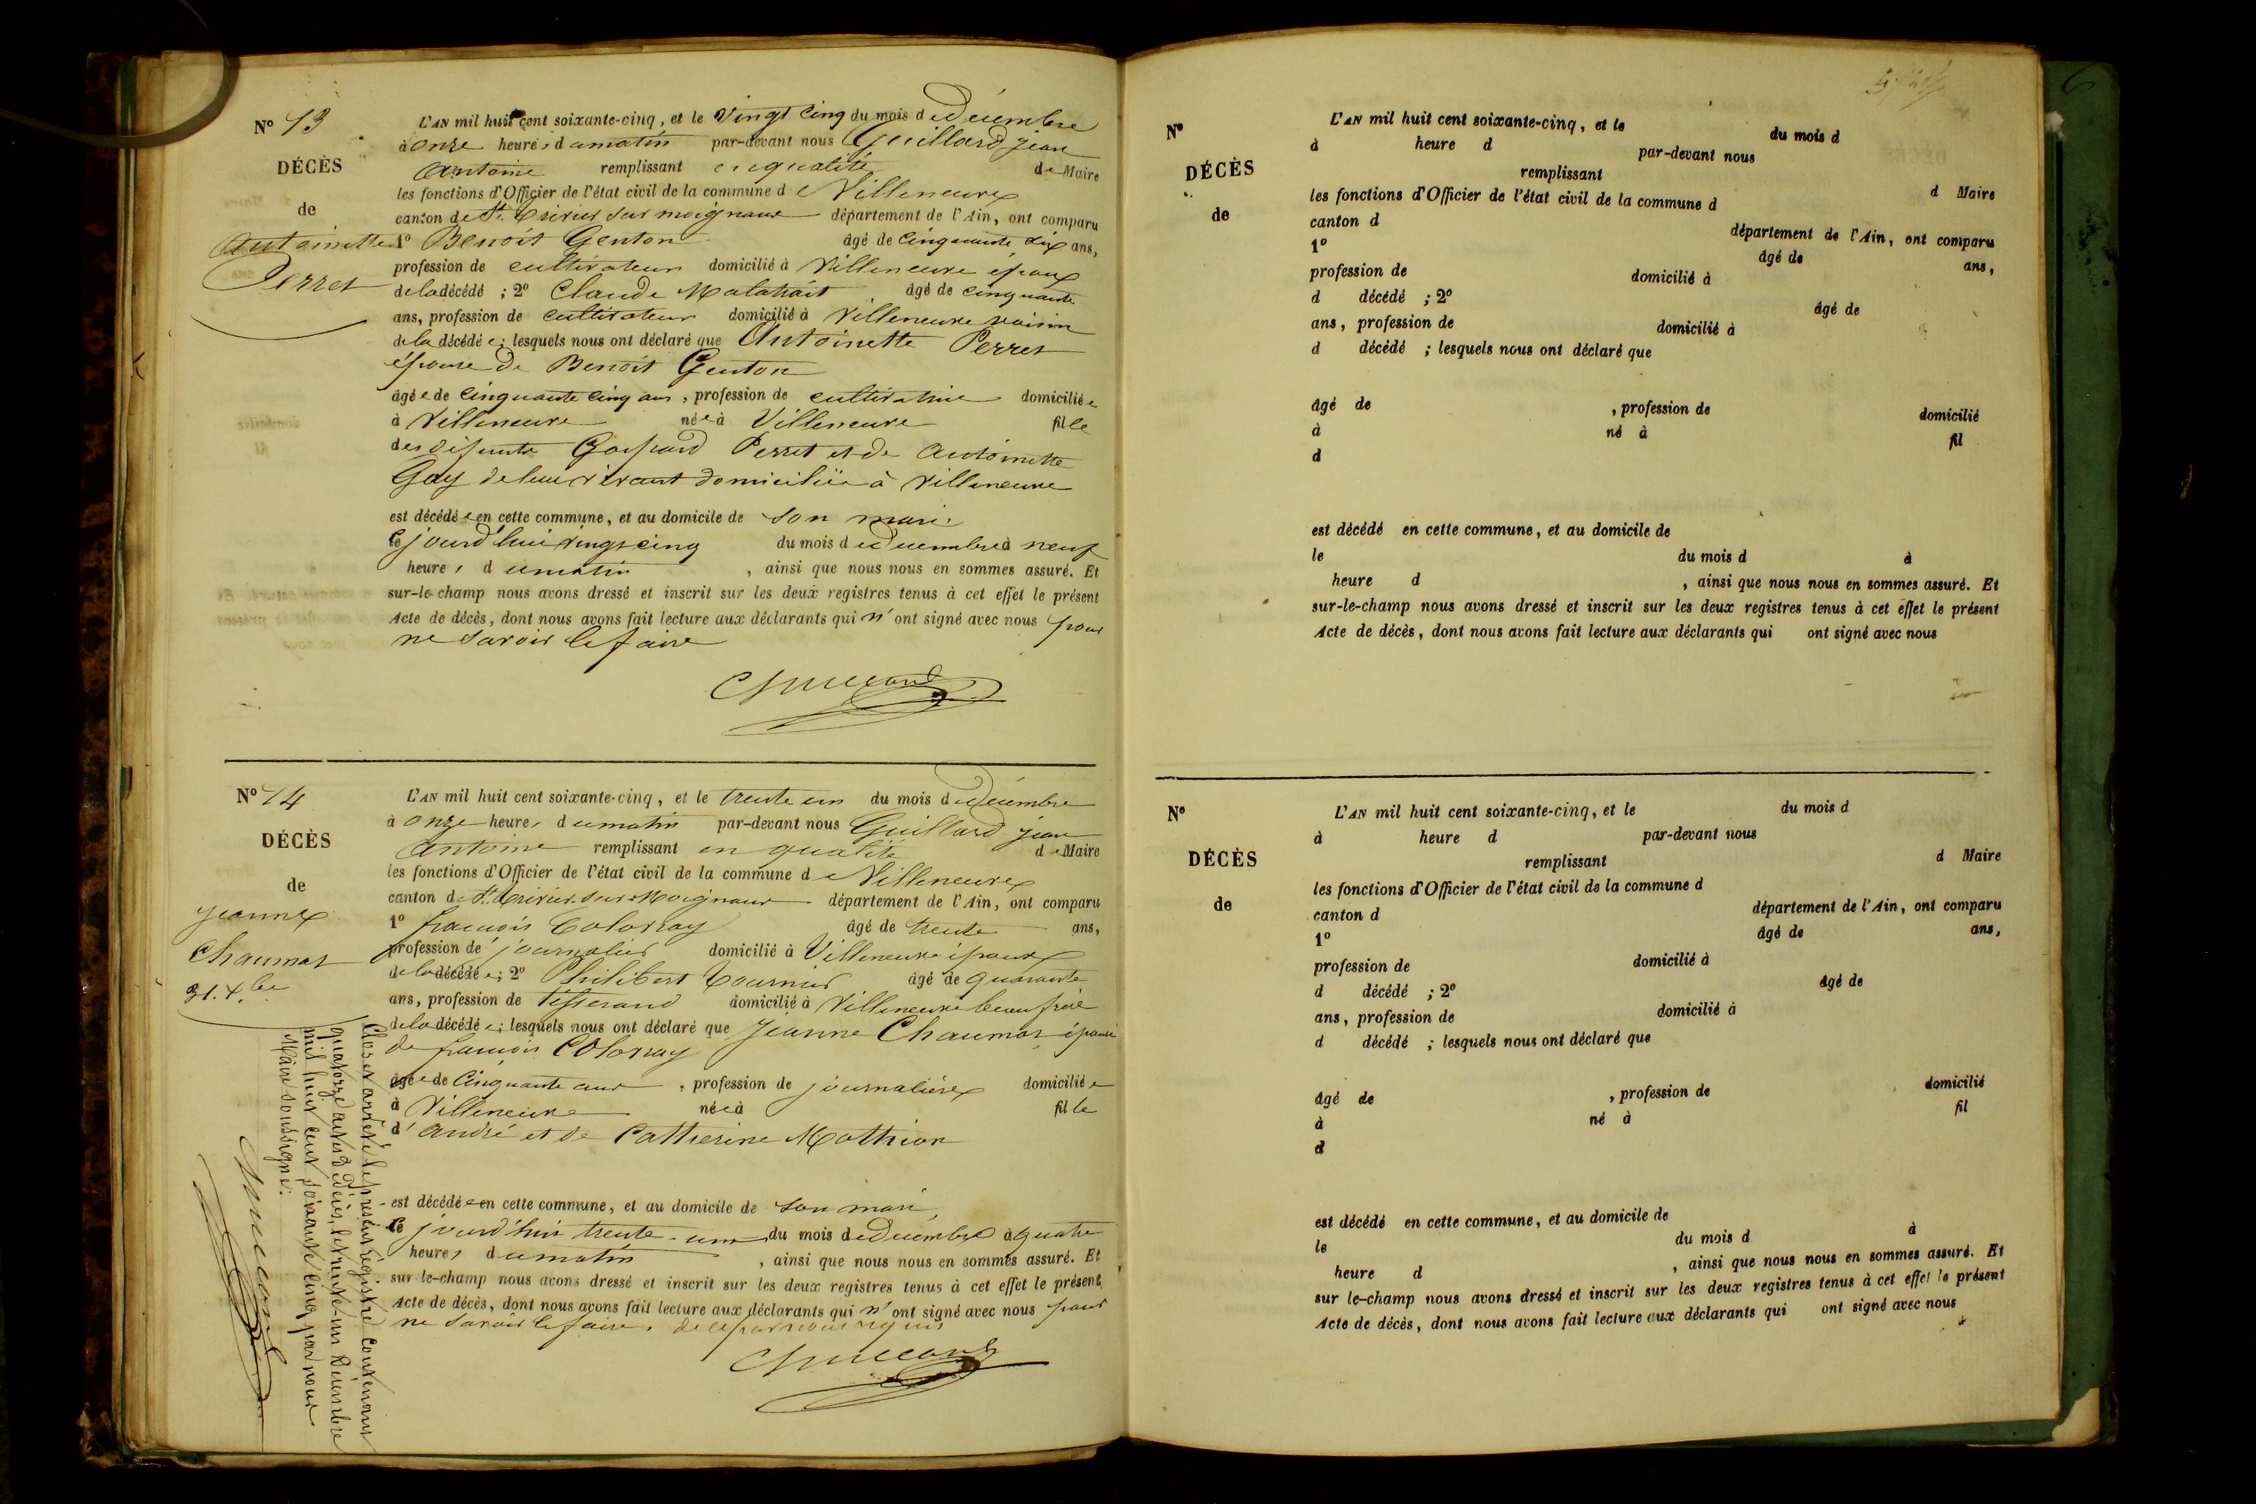 N° 13
DÉCÈS
de
Antoinette
Perret
L'AN mil huit cent soixante-cinq, et le vingt cinq du mois de décembre
à onze heures du matin par-devant nous Guillard jean
Antoine remplissant en qualité de Maire
les fonctions d'Officier de l'état civil de la commune de Villeneuve
canton de St. Trivier sur moignans département de l'Ain, ont comparu
1° Benoit Genton âgé de cinquante six ans,
profession de cultivateur domicilié à Villeneuve époux
de la décédé ; 2° Claude Malatrait âgé de cinquante
ans, profession de cultivateur domicilié à Villeneuve voisin
de la décédée ; lesquels nous ont déclaré que Antoinette Perret
épouse de Benoit Genton
âgée de cinquante cinq ans, profession de cultivatrice domiciliée
à Villeneuve née à Villeneuve fille
des défunts Gaspard Perret et de Antoinette
Gay de leur vivant domiciliés à Villeneuve
est décédée en cette commune, et au domicile de son mari
Ce jourd'hui vingt cinq du mois de décembre à neuf
heures du matin, ainsi que nous nous en sommes assuré. Et
sur-le-champ nous avons dressé et inscrit sur les deux registres tenus à cet effet le présent
Acte de décès, dont nous avons fait lecture aux déclarants qui n'ont signé avec nous pour
ne savoir le faire
N° 14
DÉCÈS
de
jeanne
Chaumat
31. X.bre
L'AN mil huit cent soixante-cinq, et le trente un du mois de décembre
à onze heures du matin par-devant nous Guillard jean
Antoine remplissant en qualité de Maire
les fonctions d'Officier de l'état civil de la commune de Villeneuve
canton de St. Trivier sur Moignans département de l'Ain, ont comparu
1° françois âgé de trente ans,
profession de journalier domicilié à Villeneuve époux
de la décédée ; 2° Philibert Tournier âgé de quarante
ans, profession de tisserand domicilié à Villeneuve beau frère
de la décédée ; lesquels nous ont déclaré que Jeanne Chaumat épouse
de françois
âgée de Cinquante ans, profession de journalière domiciliée
à Villeneuve née à fille
d'André et de Catherine Mathion
est décédée en cette commune, et au domicile de son mari,
Ce jourd'hui trente-un du mois de décembre à quatre
heures du matin, ainsi que nous nous en sommes assuré. Et
sur-le-champ nous avons dressé et inscrit sur les deux registres tenus à cet effet le présent
Acte de décès, dont nous avons fait lecture aux déclarants qui n'ont signé avec nous pour
ne savoir le faire, de ce par nous requis
Clos et arrêté le présent régistre contenant
quatorze actes de décès, le trente-un Décembre
mil huit cent soixante cinq par nous
Maire soussigné.
N°
DÉCÈS
de
L'AN mil huit cent soixante-cinq, et le du mois d
à heure d par-devant nous
remplissant d Maire
les fonctions d'Officier de l'état civil de la commune d
canton d département de l'Ain, ont comparu
1° âgé de ans,
profession de domicilié à
d décédé ; 2° âgé de
ans, profession de domicilié à
d décédé ; lesquels nous ont déclaré que
âgé de , profession de domicilié
à né à fil
d
est décédé en cette commune, et au domicile de
le du mois d à
heure d , ainsi que nous nous en sommes assuré. Et
sur-le-champ nous avons dressé et inscrit sur les deux registres tenus à cet effet le présent
Acte de décès, dont nous avons fait lecture aux déclarants qui ont signé avec nous
N°
DÉCÈS
de
L'AN mil huit cent soixante-cinq, et le du mois d
à heure d par-devant nous
remplissant d Maire
les fonctions d'Officier de l'état civil de la commune d
canton d département de l'Ain, ont comparu
1° âgé de ans,
profession de domicilié à
d décédé ; 2° âgé de
ans, profession de domicilié à
d décédé ; lesquels nous ont déclaré que
âgé de , profession de domicilié
à né à fil
d
est décédé en cette commune, et au domicile de
le du mois d à
heure d , ainsi que nous nous en sommes assuré. Et
sur le-champ nous avons dressé et inscrit sur les deux registres tenus à cet effet le présent
Acte de décès, dont nous avons fait lecture aux déclarants qui ont signé avec nous